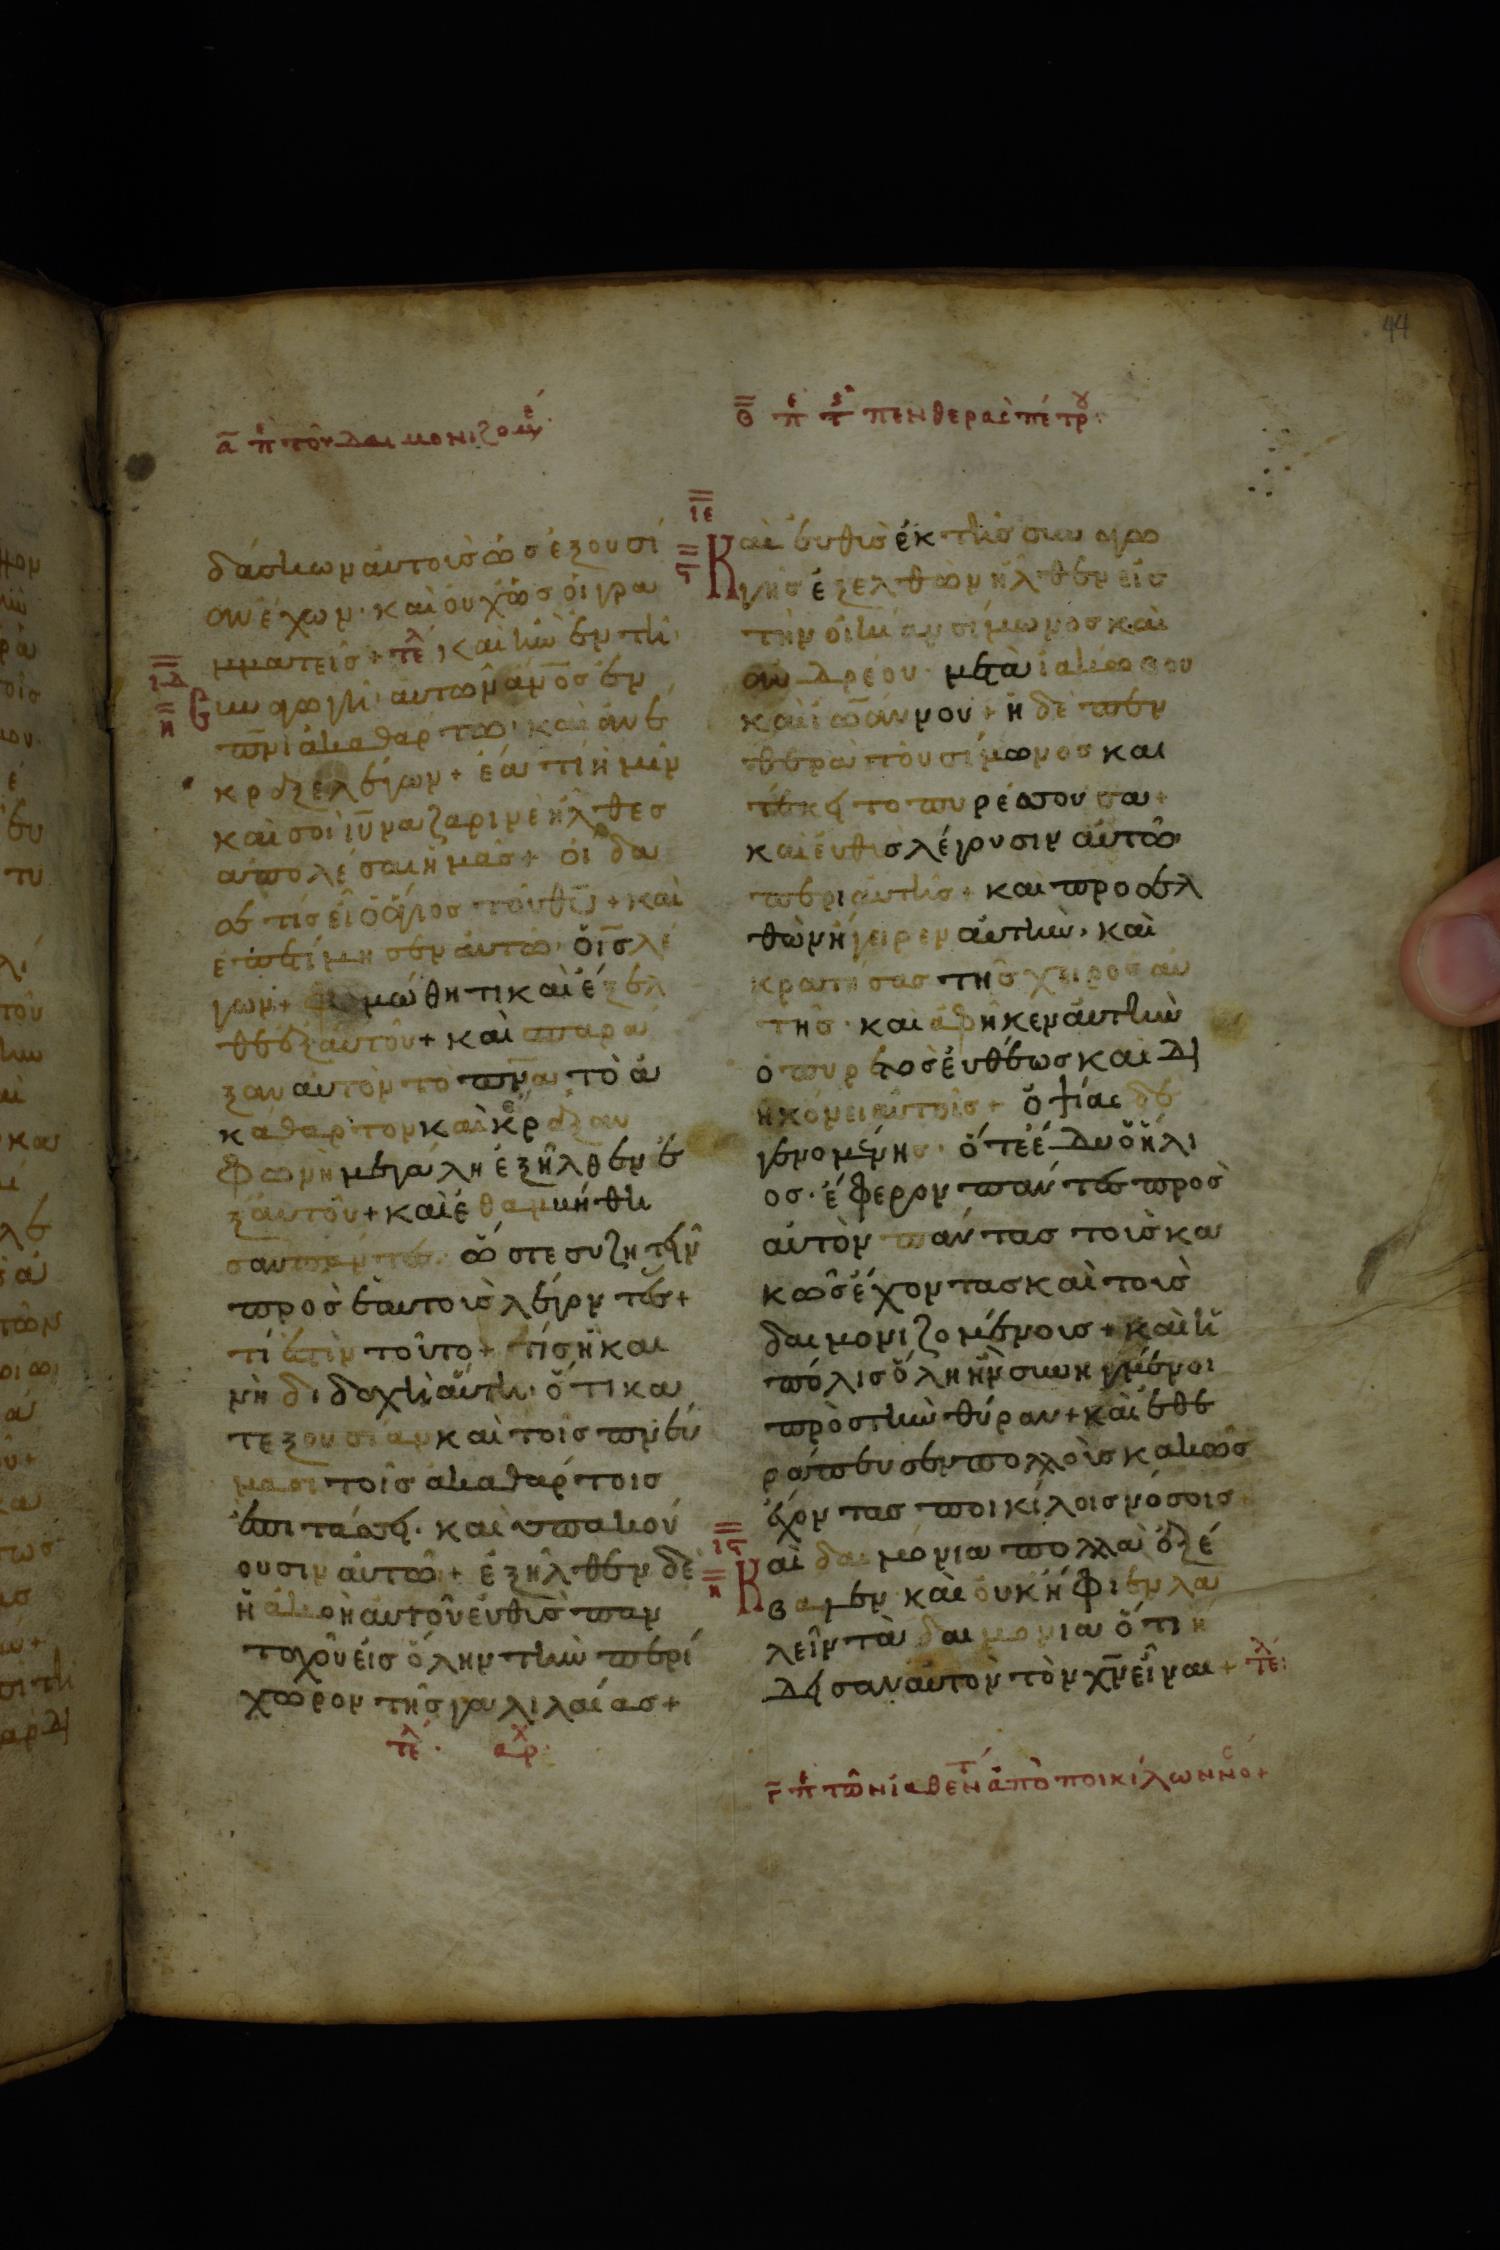 α π τοῦ δαιμονιζομεν
δάσκων αὐτοὶς ὡς ἐξουσί
αν ἔχων· καὶ οὐχ ὡς οἱ γρα
μματεῖς + τελ καὶ ἦν ἐν τῆ
ιδ
η
συναγωγῆ αὐτῶν ἄνος ἐν
πνι ἀκαθάρτω· καὶ ἀνέ
κραξε λέγων + ἔα τί ἡμῖν
καὶ σοὶ ιυ ναζαρινὲ ἦλθες
ἀπολέσαι ἡμᾶς + οἶδα
σε τίς εἶ ὁ ἅγιος τοῦ θυ + καὶ
ἐπετίμησεν αὐτῶ ὁ ις λέ
γων + φιμώθητι καὶ ἔξελ
θε ἐξ αὐτοῦ + καὶ σπαρά
ξαν αὐτὸν τὸ πνα τὸ ἀ
κάθαρτον καὶ κράξαν
φωνῆ μεγάλη ἐξῆλθεν ἐ
ξ αὐτοῦ + καὶ ἐθαμβήθη
σαν πάντες· ὥστε συζητεῖν
πρὸς ἑαυτοὺς λέγοντες +
τί ἐστὶν τοῦτο + τίς ἡ και
νὴ διδαχὴ αὕτη· ὅτι κα
τ ἐξουσίαν καὶ τοῖς πνεύ
μασι τοῖς ἀκαθάρτοις
ἐπιτάσσει· καὶ ὑπακού
ουσιν αὐτῶ + ἐξῆλθεν δὲ
ἡ ἀκοὴ αὐτοῦ εὐθὺς παν
ταχοῦ εἰς ὅλην τὴν περί
χωρον τῆς γαλιλαίας +
τελ αρχ
β π τ πενθερας πέτρου
ιε
ς
Καὶ εὐθὺς ἐκ τῆς συναγω
γῆς ἐξελθὼν ἦλθεν εἰς
τὴν οἰκίαν σίμωνος καὶ
ανδρέου· μετὰ ἰακώβου
καὶ ἰωάννου + ἡ δὲ πεν
θερὰ τοῦ σίμωνος κα
τέκειτο πυρέσσουσα +
καὶ εὐθὺς λέγουσιν αὐτῶ
περὶ αὐτῆς + καὶ προσελ
θὼν ἤγειρεν αὐτὴν· καὶ
κρατήσας τῆς χειρὸς αὐ
τῆς· καὶ ἀφῆκεν αὐτὴν
ὁ πυρετὸς εὐθέως καὶ δι
ηκόνει αὐτοῖς + ὀψίας δὲ
γενομένης· ὅτε ἔδυ ὁ ἥλι
ος· ἔφερον πάντες πρὸς
αὐτὸν πάντας τοὺς κα
κῶς ἔχοντας καὶ τοὺς
δαιμονιζομένους + καὶ ἡ
πόλις ὅλη ἦν συνηγμένοι
πρὸς τὴν θύραν + καὶ ἐθε
ράπευσεν πολλοὺς κακῶς
ἔχοντας ποικίλοις νόσοις
ις
η
Καὶ δαιμόνια πολλὰ ἐξέ
βαλεν καὶ οὐκ ἤφιεν λα
λεῖν τὰ δαιμόνια ὅτι ἤ
δεισαν αὐτὸν τὸν χν εἶναι + τελ
γ π τῶν ἰαθέντ ἀπὸ ποικίλων νόσ +
44